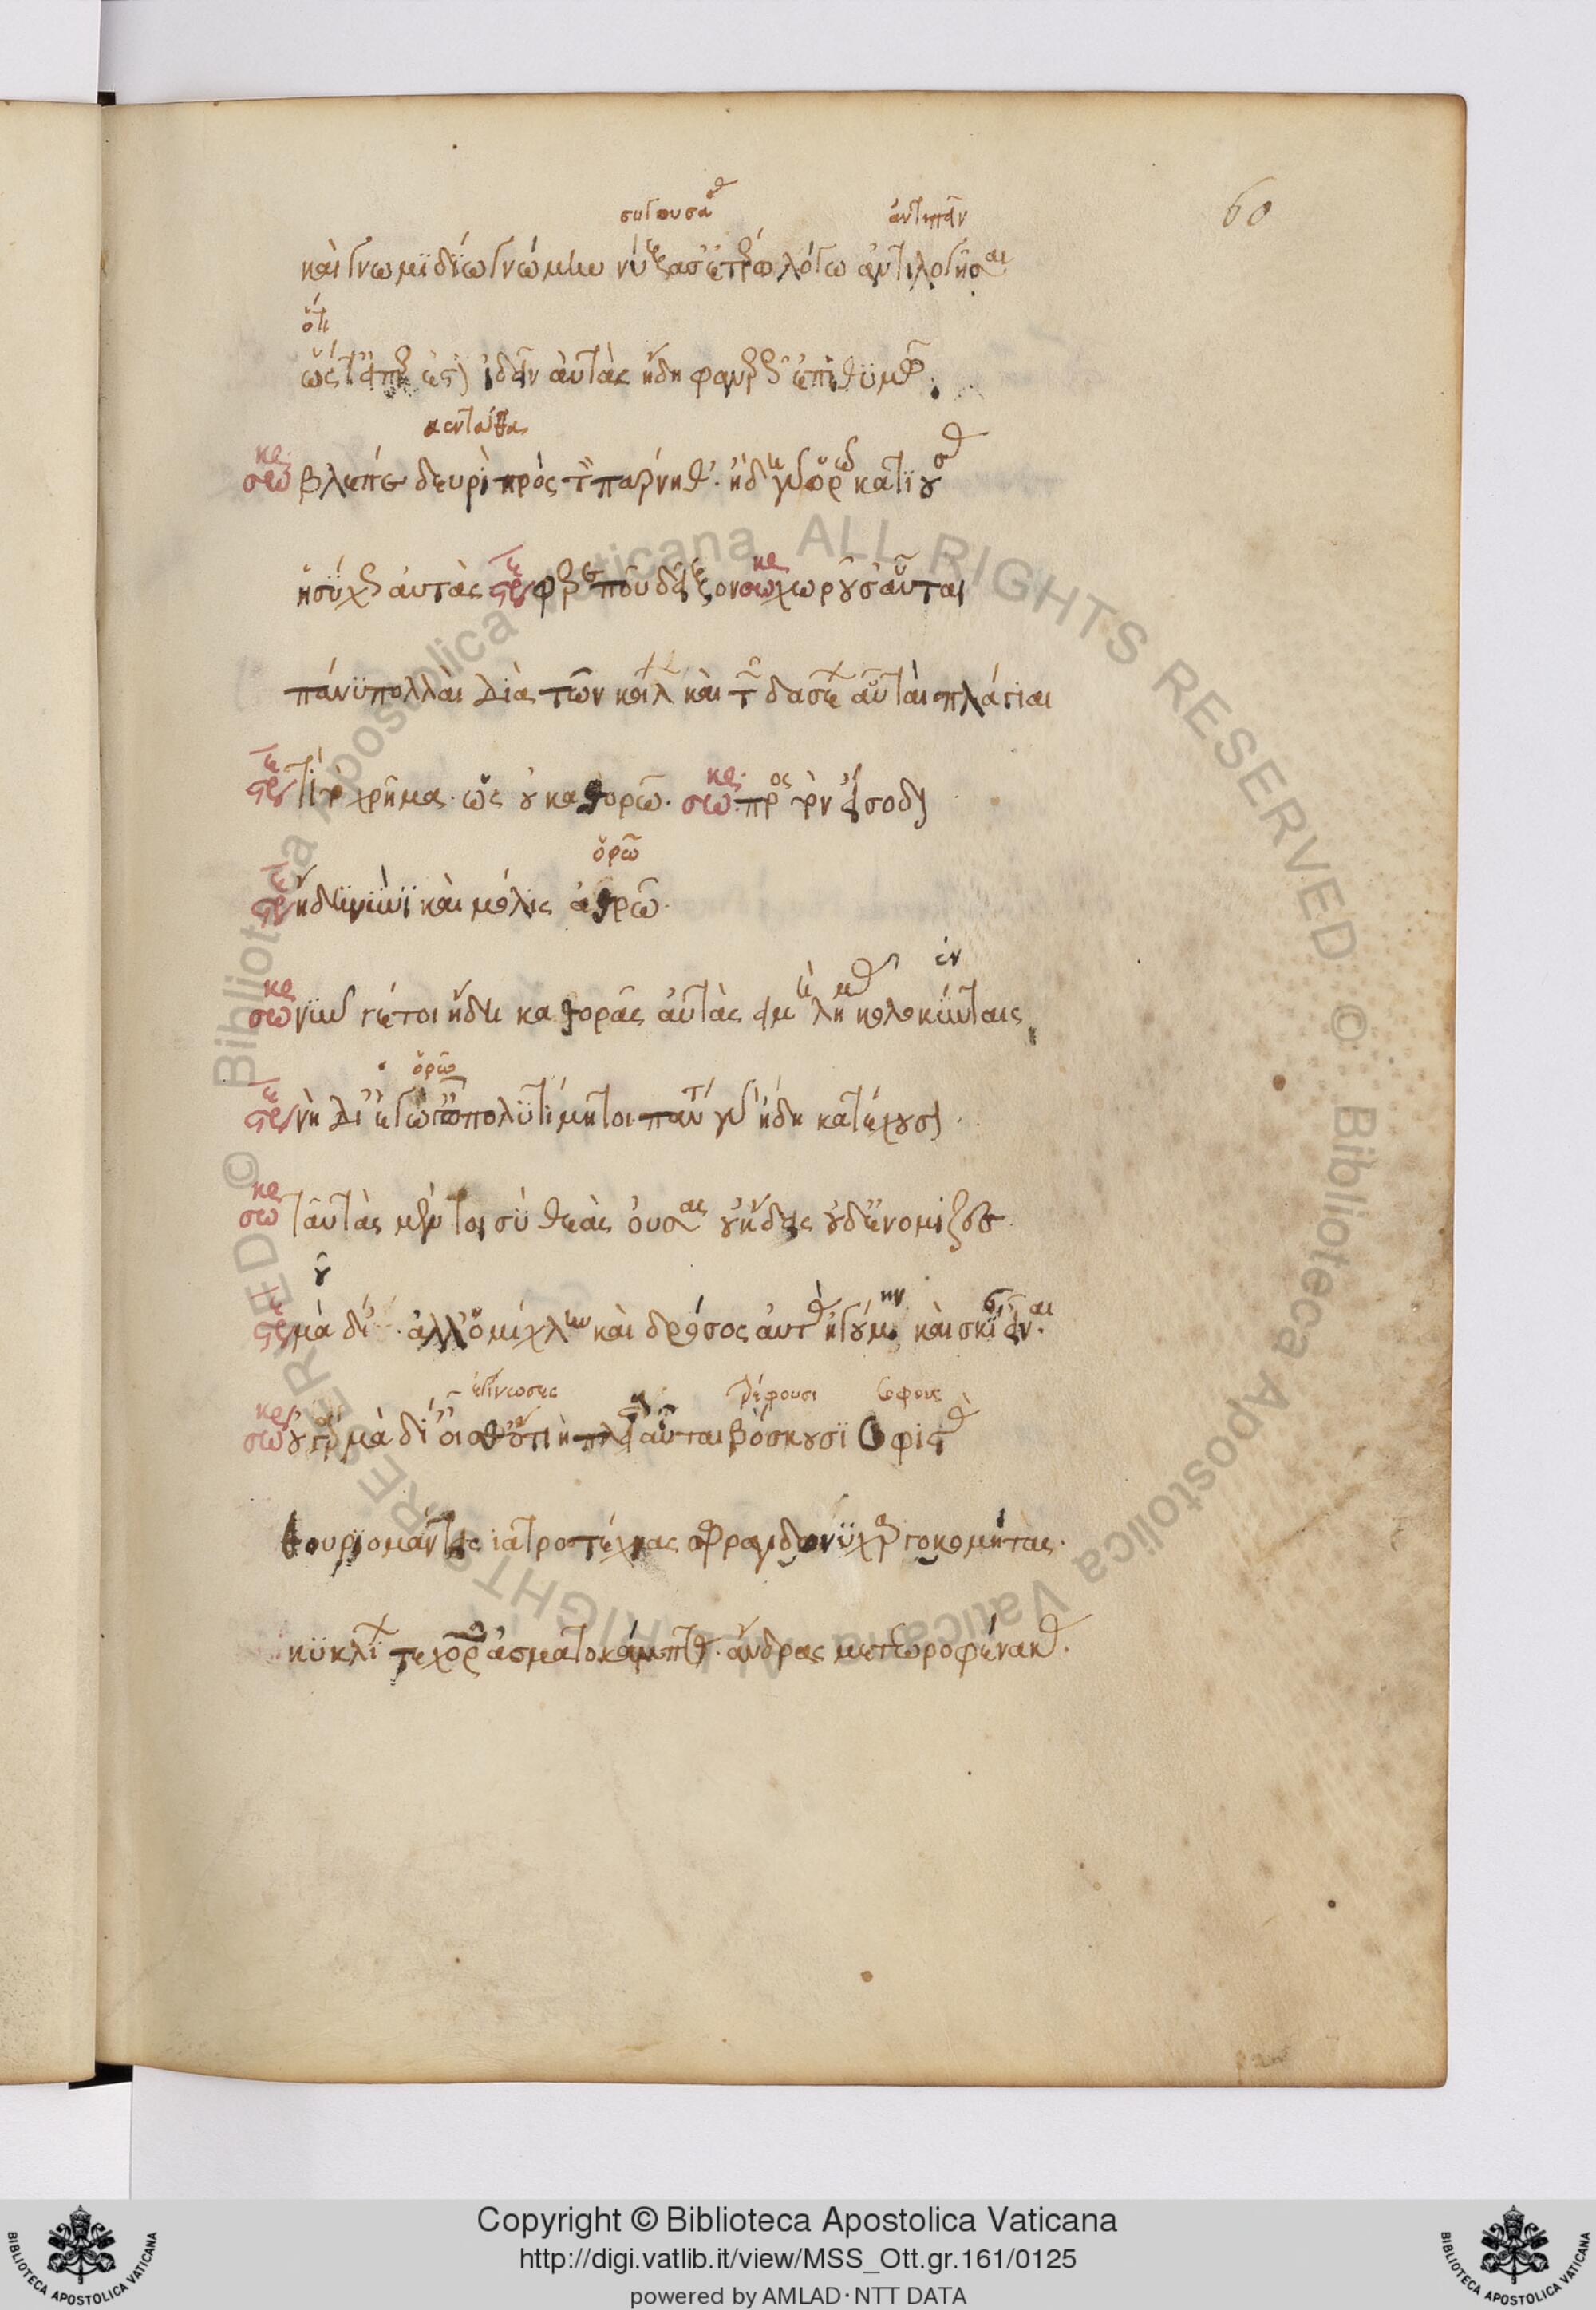 συγκρούσασα ἀντειπεῖν
60
καὶ γνωμϊδΐω γνώμην νύξασ' ἑτέρω λόγω ἀντιλογῆσαι
ὅτι
ὥστ' εἴπερ ἐστὶν ἰδεῖν αὐτὰς ἤδη φανερῶς ἐπιθϋμῶ.
κἀνταῦθα
σωκρ βλέπε δευρὶ πρὸς τὴν πάρνηθ'. ἤδη γὰρ ὁρῶ κατϊούσας
ἡσύχως αὐτὰς στρε φέρε ποῦ δεῖξον σωκρ χωροῦσ' αὗται
πάνϋ πολλαὶ διὰ τῶν κοίλων καὶ τῶν δασέων αὗται πλάγιαι
στρε τί τὸ χρῆμα. ὡς οὐ καθορῶ. σωκρ πρὸς τὴν εἴσοδον
ὁρῶ
στρε ἤδη νυνὶ καὶ μόλις ἀθρῶ.
ἐν
σωκρ νῦν γέτοι ἤδη καθορᾶς αὐτὰς εἰ μὴ λημᾶς κολοκύνταις
ὁρῶ
στρε νὴ Δί' ἔγωγ' ὦ πολϋτίμητοι. πάντα γὰρ ἤδη κατέχουσι.
σωκρ ταύτας μέντοι σὺ θεὰς οὔσας οὐκ ᾔδεις οὐδ' ἐνόμιζες.
οὐ
στρε μὰ δί'. ἀλλ' ὁμίχλην καὶ δρόσος αὐτὰς ἡγούμην καὶ σκιὰς εἶναι.
ἐγίνωσκες τρέφουσι σοφούς
σωκρ οὐ γὰρ μὰ δί' οἶσθ' ὁτιὴ πλείστους αὗται βόσκουσϊ σοφιστάς
θουριομάντεις ϊατροτέχνας σφραγιδονϋχαργοκομήτας.
κϋκλΐων τε χορῶν ἀσματοκάμπτας. ἄνδρας μετεωροφένακας.
Copyright © Biblioteca Apostolica Vaticana
http://digi.vatlib.it/view/MSS_Ott.gr.161/0125
powered by AMLAD·NTT DATA
BIBLIOTECA APOSTOLICA VATICANA
BIBLIOTECA APOSTOLICA VATICANA
© Biblioteca Apostolica Vaticana ALL RIGHTS RESERVED
© Biblioteca Apostolica Vaticana ALL RIGHTS RESERVED